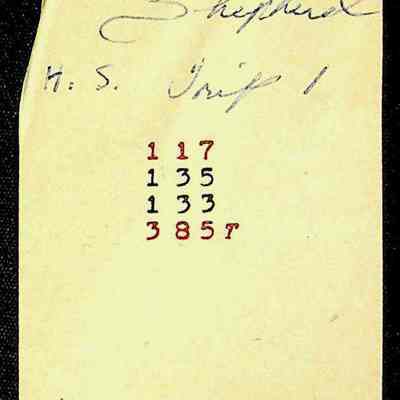 Shepherd
H. S. Trip 1
117
135
133
385T